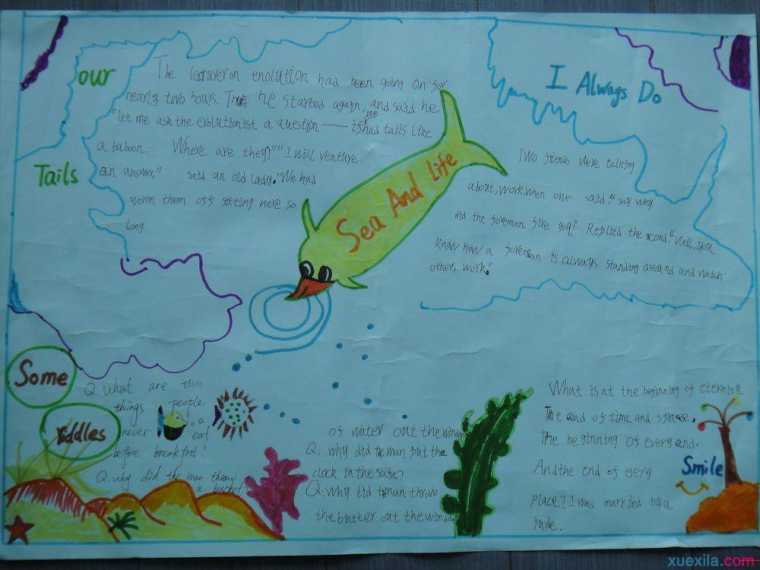 our
Tails
The lecturer on enolution had been going on for
nearly two hours. Then he started again, and said he
let me ask the evolutionist a question —— is had tails like
a baboon. Where are they?"" I will venture
an answer" said an old lady. "We had
worn them oss sitting here so
long
Sea And Life
I Always Do
Two were talking
about, work men one said "say why
did the Replied the second "Well, you
know how a is always standing around and watch
other, work."
Some
riddles
Q. what are
things people
never eat
before breakfast?
Q. why did the man throw
a bucket
of water out the window
Q. why did the man put the
clock in the
Q. why did the man throw
the butter out the window
What is at the beginning of eternity
The end of time and space.
The beginning of every end.
And the end of every
place? I was marked by a
Smile
xuexila.com